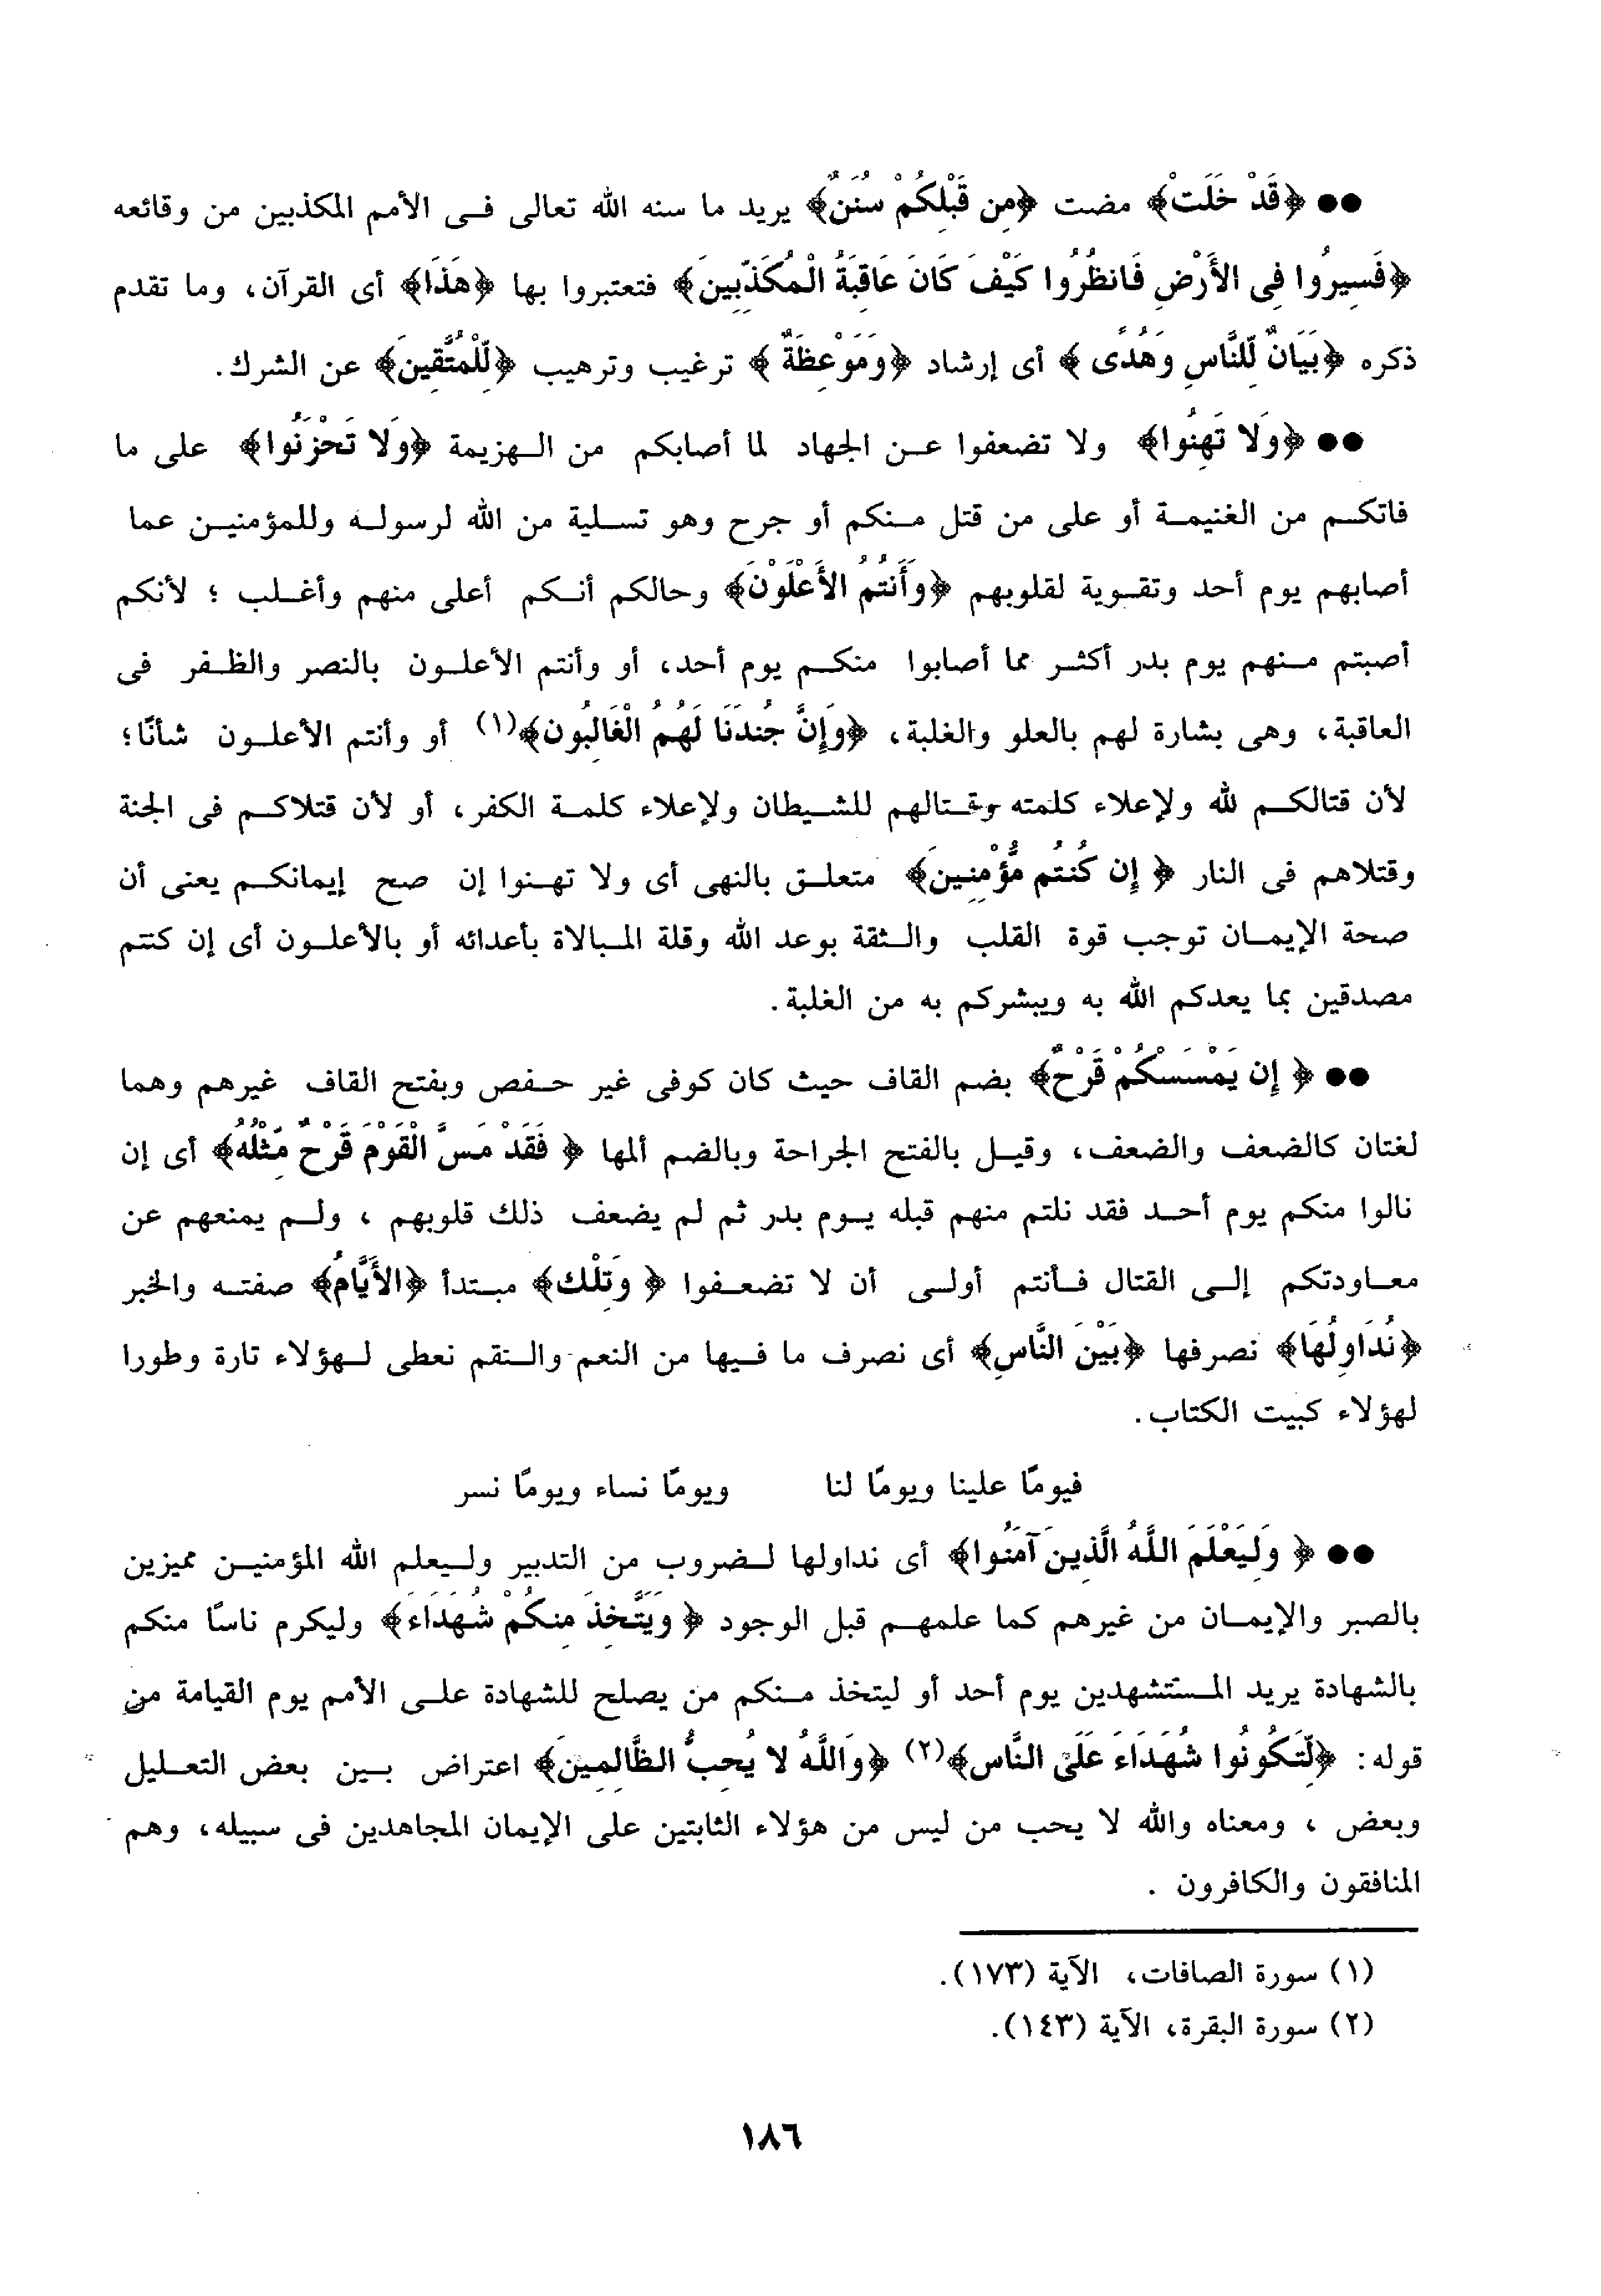 ●● ﴿قَدْ خَلَتْ﴾ مضت ﴿مِن قَبْلِكُمْ سُنَنٌ﴾ يريد ما سنه الله تعالى فى الأمم المكذبين من وقائعه
﴿فَسِيرُوا فِي الأَرْضِ فَانظُرُوا كَيْفَ كَانَ عَاقِبَةُ الْمُكَذِّبِينَ﴾ فتعتبروا بها ﴿هَذَا﴾ أى القرآن، وما تقدم
ذكره ﴿بَيَانٌ لِّلنَّاسِ وَهُدًى ﴾ أى إرشاد ﴿وَمَوْعِظَةٌ ﴾ ترغيب وترهيب ﴿لِّلْمُتَّقِينَ﴾ عن الشرك.
●● ﴿وَلا تَهِنُوا﴾ ولا تضعفوا عن الجهاد لما أصابكم من الهزيمة ﴿وَلا تَحْزَنُوا﴾ على ما
فاتكم من الغنيمة أو على من قتل منكم أو جرح وهو تسلية من الله لرسوله وللمؤمنين عما
أصابهم يوم أحد وتقوية لقلوبهم ﴿وَأَنتُمُ الأَعْلَوْنَ﴾ وحالكم أنكم أعلى منهم وأغلب ؛ لأنكم
أصبتم منهم يوم بدر أكثر مما أصابوا منكم يوم أحد، أو وأنتم الأعلون بالنصر والظفر فى
العاقبة، وهى بشارة لهم بالعلو والغلبة، ﴿وَإِنَّ جُندَنَا لَهُمُ الْغَالِبُون﴾(١) أو وأنتم الأعلون شأنًا؛
لأن قتالكم لله ولإعلاء كلمته وقتالهم للشيطان ولإعلاء كلمة الكفر، أو لأن قتلاكم فى الجنة
وقتلاهم فى النار ﴿ إِن كُنتُم مُّؤْمِنِينَ﴾ متعلق بالنهى أى ولا تهنوا إن صح إيمانكم يعنى أن
صحة الإيمان توجب قوة القلب والثقة بوعد الله وقلة المبالاة بأعدائه أو بالأعلون أى إن كنتم
مصدقين بما يعدكم الله به ويبشركم به من الغلبة.
●● ﴿ إِن يَمْسَسْكُمْ قَرْحٌ﴾ بضم القاف حيث كان كوفى غير حفص وبفتح القاف غيرهم وهما
لغتان كالضعف والضعف، وقيل بالفتح الجراحة وبالضم ألمها ﴿ فَقَدْ مَسَّ الْقَوْمَ قَرْحٌ مِّثْلُهُ﴾ أى إن
نالوا منكم يوم أحد فقد نلتم منهم قبله يوم بدر ثم لم يضعف ذلك قلوبهم ، ولم يمنعهم عن
معاودتكم إلى القتال فأنتم أولى أن لا تضعفوا ﴿ وَتِلْكَ﴾ مبتدأ ﴿الأَيَّامُ﴾ صفته والخبر
﴿نُدَاوِلُهَا﴾ نصرفها ﴿بَيْنَ النَّاسِ﴾ أى نصرف ما فيها من النعم والنقم نعطى لهؤلاء تارة وطورا
لهؤلاء كبيت الكتاب.
فيومًا علينا ويومًا لنا ويومًا نساء ويومًا نسر
●● ﴿ وَلِيَعْلَمَ اللَّهُ الَّذِينَ آمَنُوا﴾ أى نداولها لضروب من التدبير وليعلم الله المؤمنين مميزين
بالصبر والإيمان من غيرهم كما علمهم قبل الوجود ﴿ وَيَتَّخِذَ مِنكُمْ شُهَدَاءَ﴾ وليكرم ناسًا منكم
بالشهادة يريد المستشهدين يوم أحد أو ليتخذ منكم من يصلح للشهادة على الأمم يوم القيامة من
قوله: ﴿لِّتَكُونُوا شُهَدَاءَ عَلَى النَّاسِ﴾(٢) ﴿وَاللَّهُ لا يُحِبُّ الظَّالِمِينَ﴾ اعتراض بين بعض التعليل
وبعض ، ومعناه والله لا يحب من ليس من هؤلاء الثابتين على الإيمان المجاهدين فى سبيله، وهم
المنافقون والكافرون .
(١) سورة الصافات، الآية (١٧٣).
(٢) سورة البقرة، الآية (١٤٣).
١٨٦